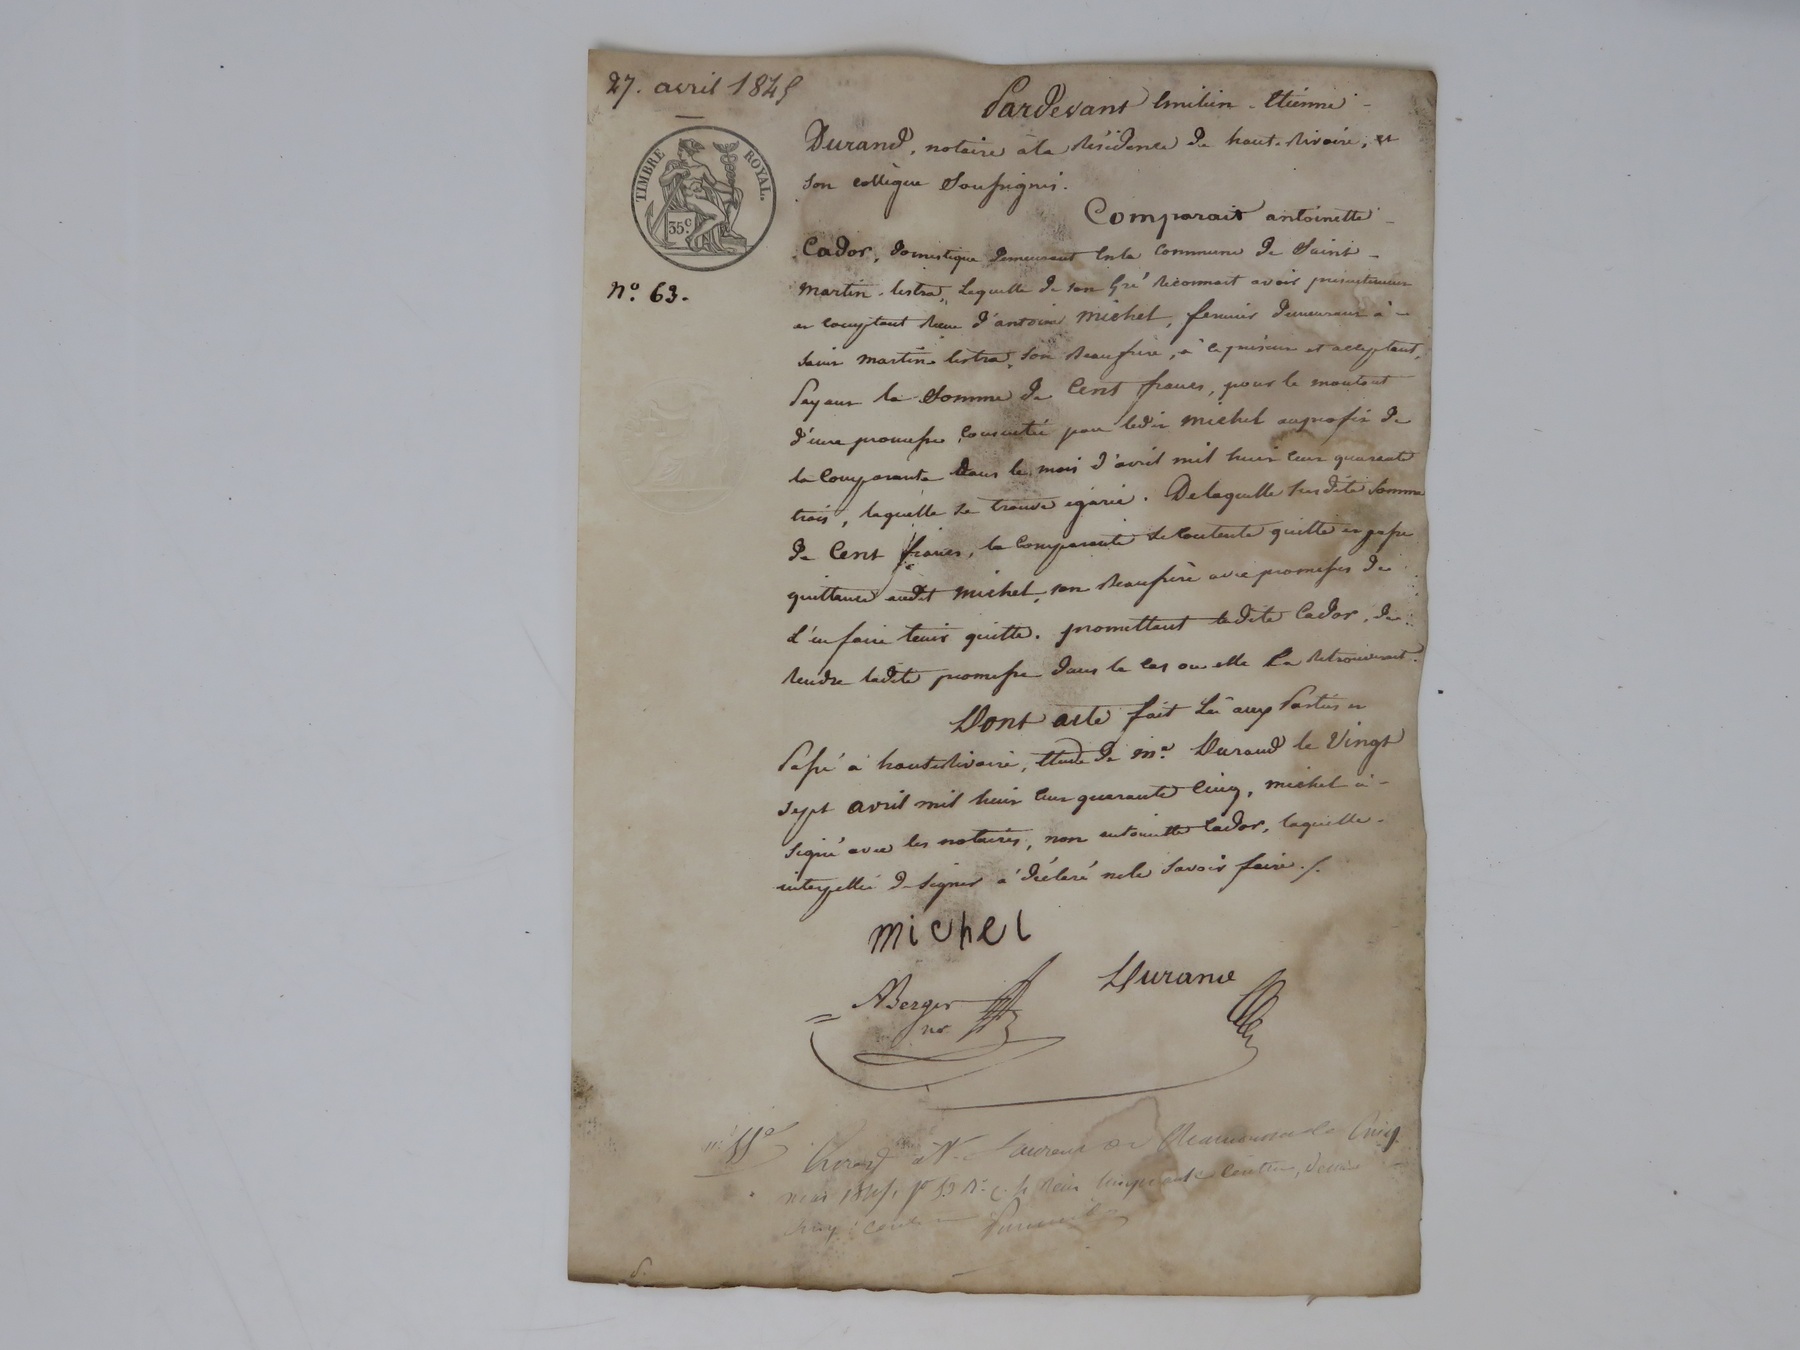 27. avril 1845
TIMBRE ROYAL.
35 c.
n.o 63.
Pardevant Emilien - Etienne -
Durand, notaire à la Résidence de haut-Rivoire, et
son collègue Soussignés.
Comparait antoinette -
Cador, domestique demeurant en la Commune de Saint -
martin-lestra, Laquelle de son Gré Reconnait avoir présentement
et comptant Reçu d'antoine michel, fermier demeurant à -
saint martin lestra, son Beaufrère, à ce présent et acceptant,
Payant la Somme de Cent francs, pour le montant
d'une promesse, consentie par ledit michel au profit de
la Comparante dans le mois d'avril mil huit cent quarante
trois, laquelle se trouve égarée. De laquelle susdite Somme
de Cent francs, la Comparante se contente quitte et passe
quittance audit michel, son Beaufrère avec promesses de
l'en faire tenir quitte. promettant ladite Cador, de
Rendre ladite promesse dans le cas ou elle La Retrouverait.
Dont acte fait Lu aux Parties et
Passé à haut-Rivoire, étude de m.e Durand le Vingt
sept avril mil huit cent quarante cinq, michel à -
signé avec les notaires, non antoinette Cador, laquelle -
interpellée de signer a déclaré ne le savoir faire./.
michel
Durand
ABerger
nre
mai 1845, f.o